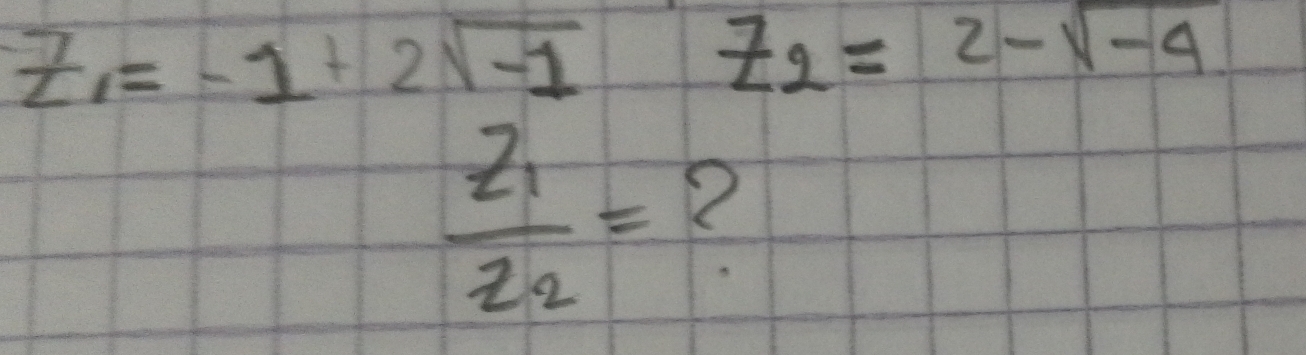 Z₁ = -1 + 2√-1 Z₂ = 2 - √-4
Z₁/Z₂ = ?